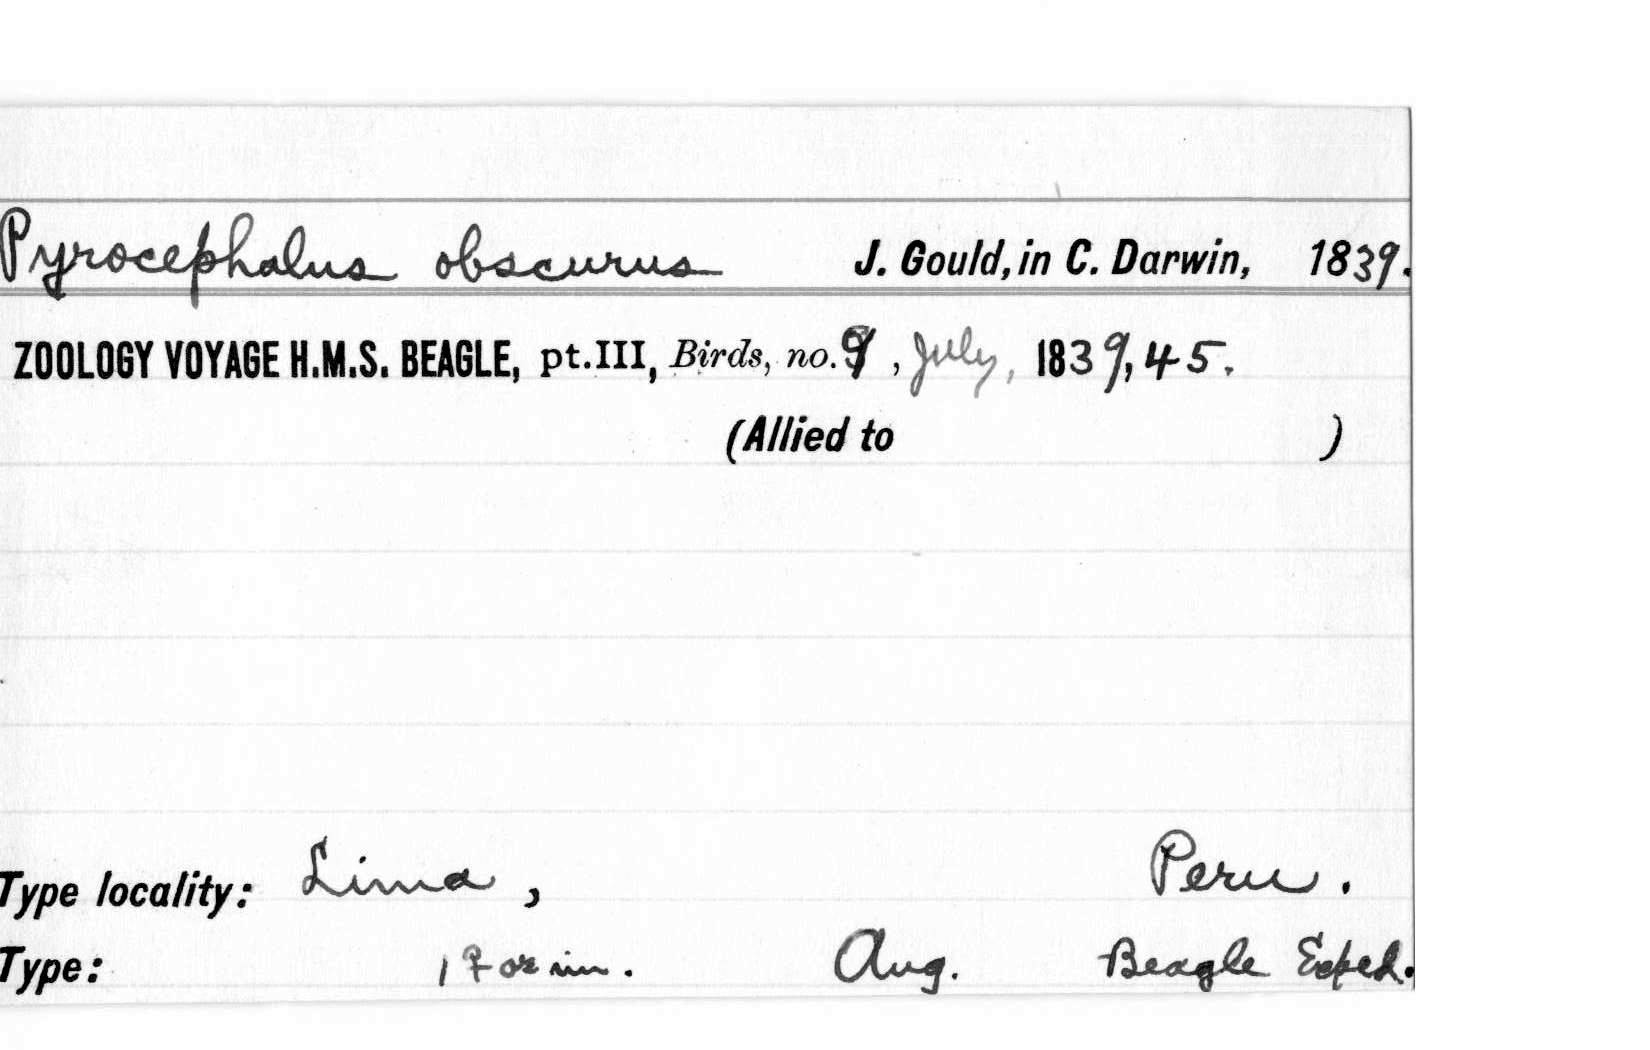 Pyrocephalus obscurus J. Gould, in C. Darwin, 1839.
ZOOLOGY VOYAGE H.M.S. BEAGLE, pt.III, Birds, no.9, July, 1839, 45.
(Allied to )
Type locality: Lima, Peru.
Type: 1 ♀ or im. Aug. Beagle Exped.